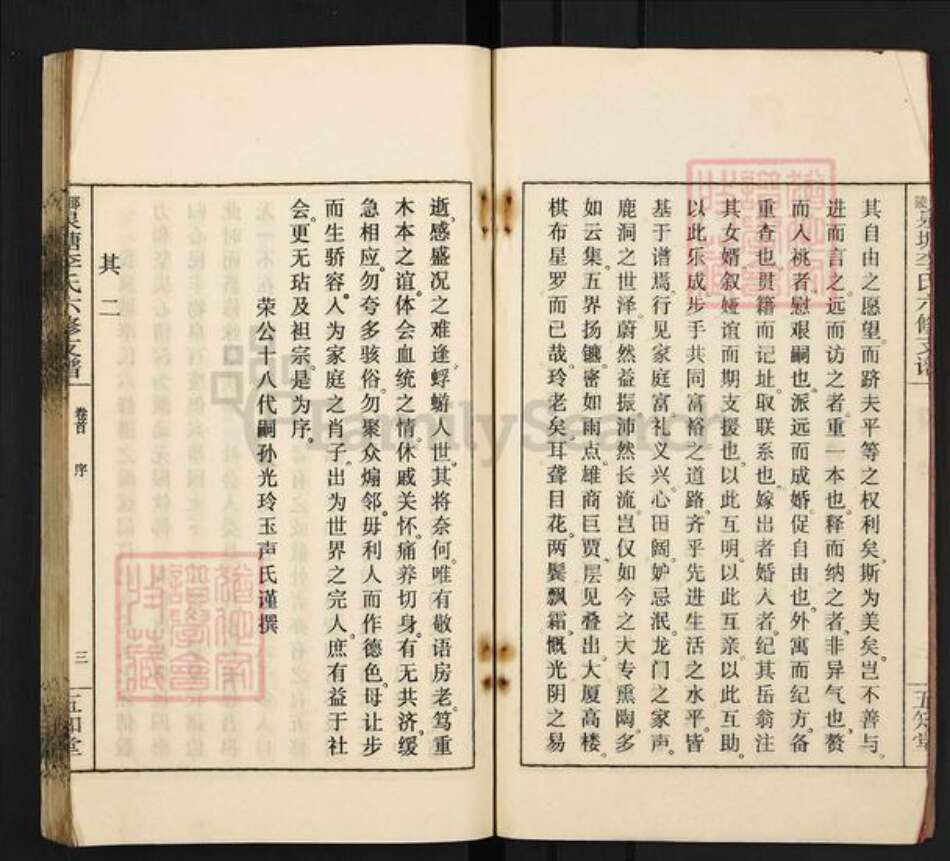 其自由之愿望。而跻夫平等之权利矣。斯为美矣。岂不善与。
进而言之。远而访之者。重一本也。释而纳之者。非异气也。赘
而人祧者。慰艰嗣也。派远而成婚。促自由也。外寓而纪方。备
重查也。贯籍而记址。取联系也。嫁出者婚入者。纪其岳翁注
其女婿。叙娅谊而期支援也。以此互明。以此互亲。以此互助。
以此乐成。步手共同富裕之道路。齐乎先进生活之水平。皆
基于谱焉。行见家庭富礼义兴。心田阔。妒忌泯。龙门之家声。
鹿洞之世泽。蔚然益振。沛然长流。岂仅如今之大专熏陶。多
如云集。五界扬镳。密如雨点。雄商巨贾。层见叠出。大厦高楼。
棋布星罗而已哉。玲老矣。耳聋目花。两鬓飘霜。慨光阴之易
逝。感盛况之难逢。蜉蝣人世。其将奈何。唯有敬语房老。笃重
木本之谊。体会血统之情。休戚关怀。痛养切身。有无共济。缓
急相应。勿夸多骇俗。勿聚众煽邻。毋利人而作德色。母让步
而生骄容。人为家庭之肖子。出为世界之完人。庶有益于社
会。更无玷及祖宗。是为序。
荣公十八代嗣孙光玲玉声氏谨撰
其二
泉塘李氏六修支谱
卷首
序
三
五知堂
FamilySearch